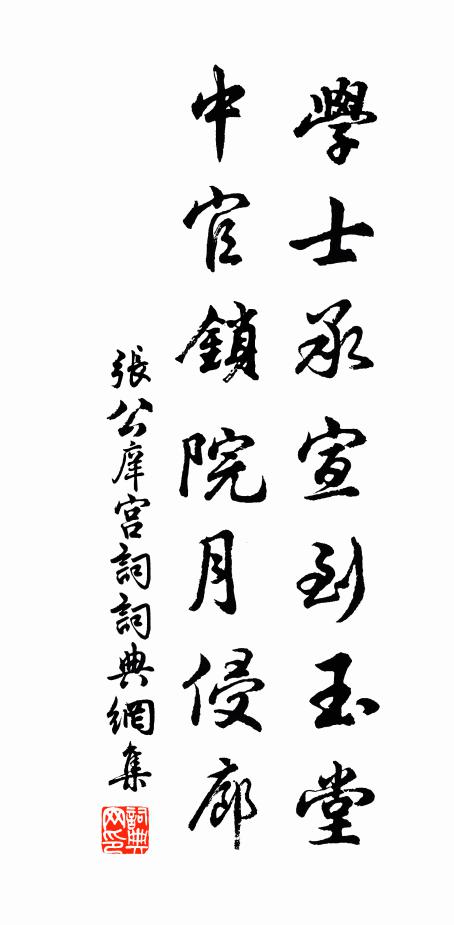 學士承宣到玉堂
中官鎖院月侵廊
張公庠宮詞詞典網集
詞典網印